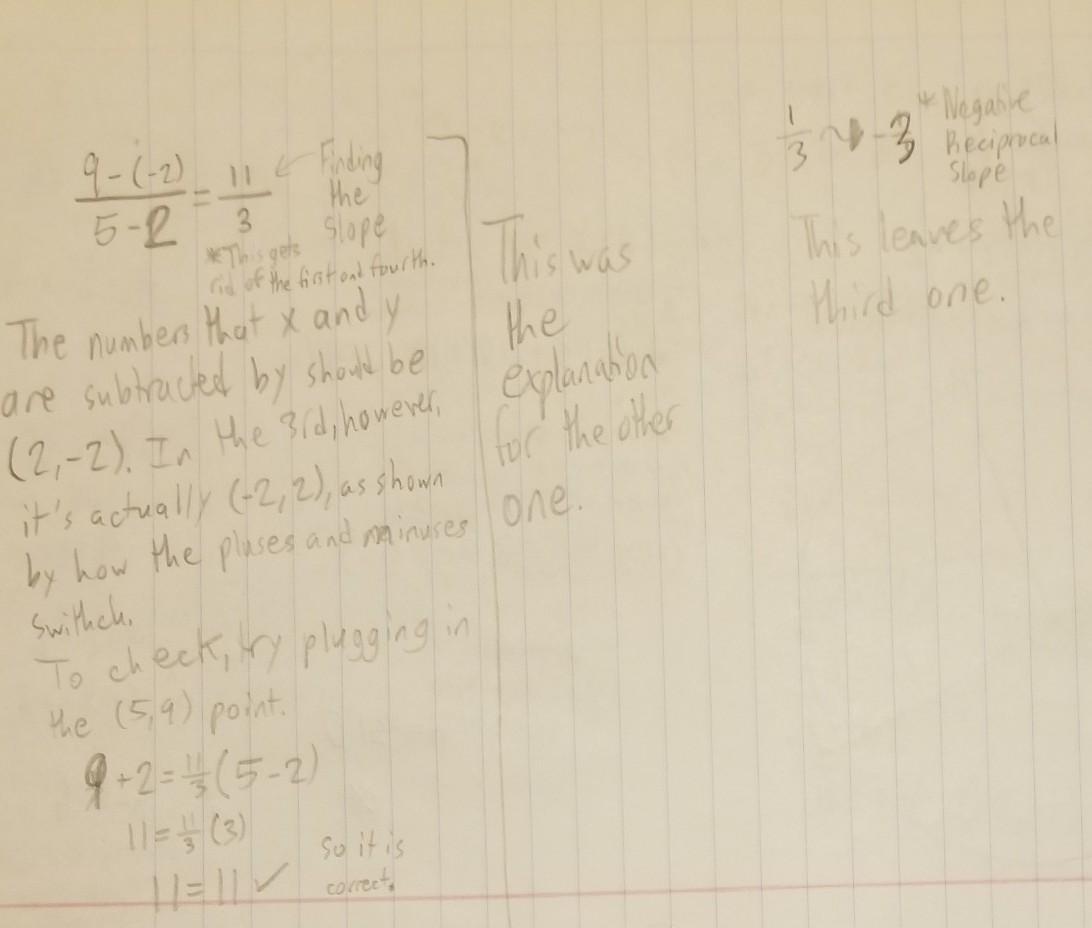 9-(-2) / 5-2 = 11/3 ← Finding
the
slope
*This gets
rid of the first and fourth.
The numbers that x and y
are subtracted by should be
(2,-2). In the 3rd, however,
it's actually (-2,2), as shown
by how the pluses and mainuses
swithch.
To check, try plugging in
the (5,9) point.
9+2=11/3(5-2)
11=11/3(3)
11=11✓
So it is
correct.
This was
the
explanation
for the other
one.
1/3 ~> -3 *Negative
Reciprocal
Slope
This leaves the
third one.